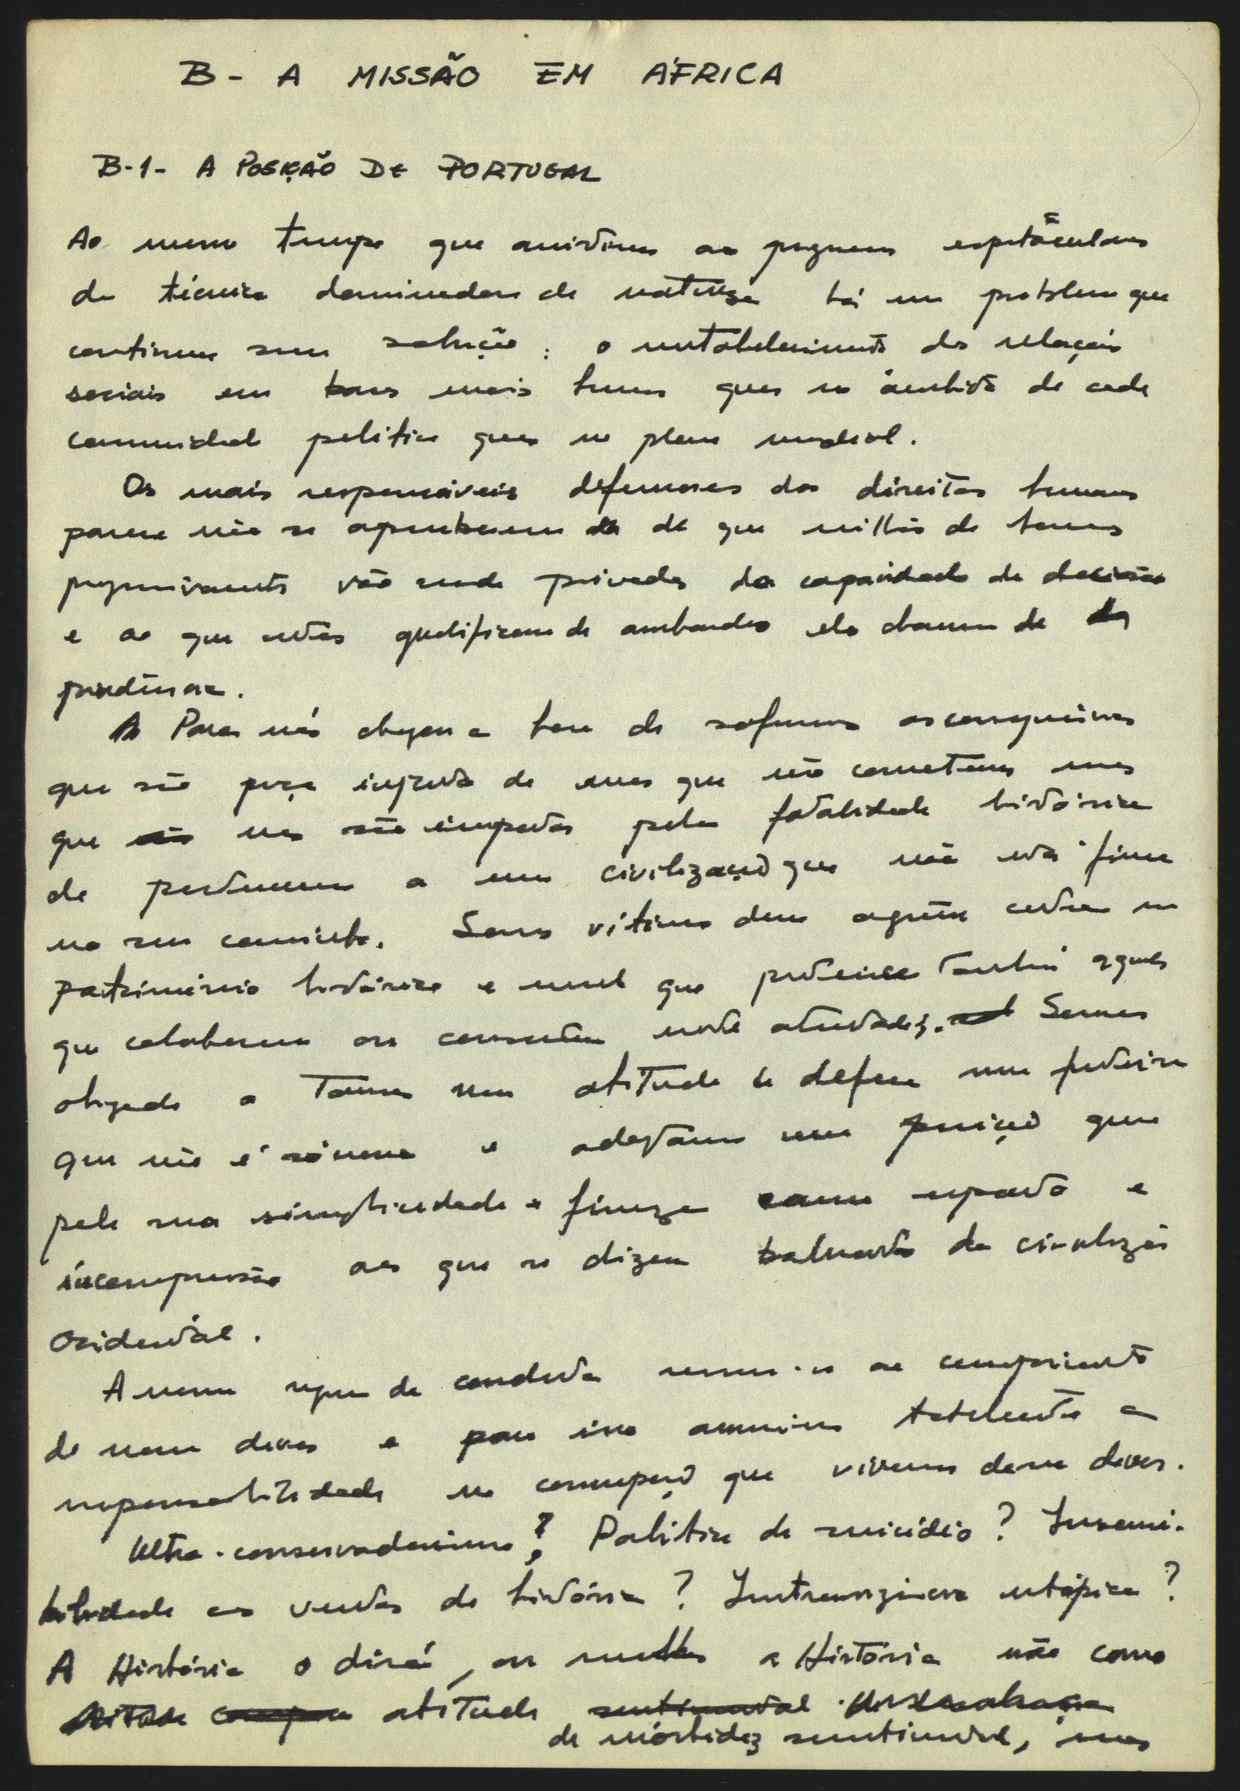 B - A MISSÃO EM ÁFRICA
B-1- A POSIÇÃO DE PORTUGAL
Ao mesmo tempo que assistimos ao progresso espectacular
da técnica dominadora da natureza há um problema que
continua sem solução: o restabelecimento das relações
sociais em bases mais humanas quer no âmbito de cada
comunidade política quer no plano mundial.
Os mais responsáveis defensores dos direitos humanos
parece não se aperceberem de que milhões de homens
progressivamente vão sendo privados da capacidade de decisão
e ao que estes qualificam de cobardia eles chamam de
prudência.
Para nós chegou a hora de sofrermos as consequências
que são força injusta de erros que não cometemos mas
que nos são impostos pela fatalidade histórica
de pertencermos a uma civilização que não está firme
no seu caminho. Somos vítimas duma agressão contra um
património histórico e moral que pertence também àqueles
que colaboram ou consentem neste atentado. Somos
obrigados a tomar uma atitude de defesa numa fronteira
que não é só nossa e adoptamos uma posição que
pela sua simplicidade e firmeza causa espanto e
incompreensão aos que se dizem baluartes da civilização
Ocidental.
A nossa regra de conduta resume-se ao cumprimento
do nosso dever e para isso assumimos totalmente a
responsabilidade na concepção que vivemos desse dever.
Ultra-conservadorismo? Política de suicídio? Insensi-
bilidade aos ventos da história? Intransigência utópica?
A História o dirá, ou melhor a História não como
atitude
de mórbidez sentimental, mas